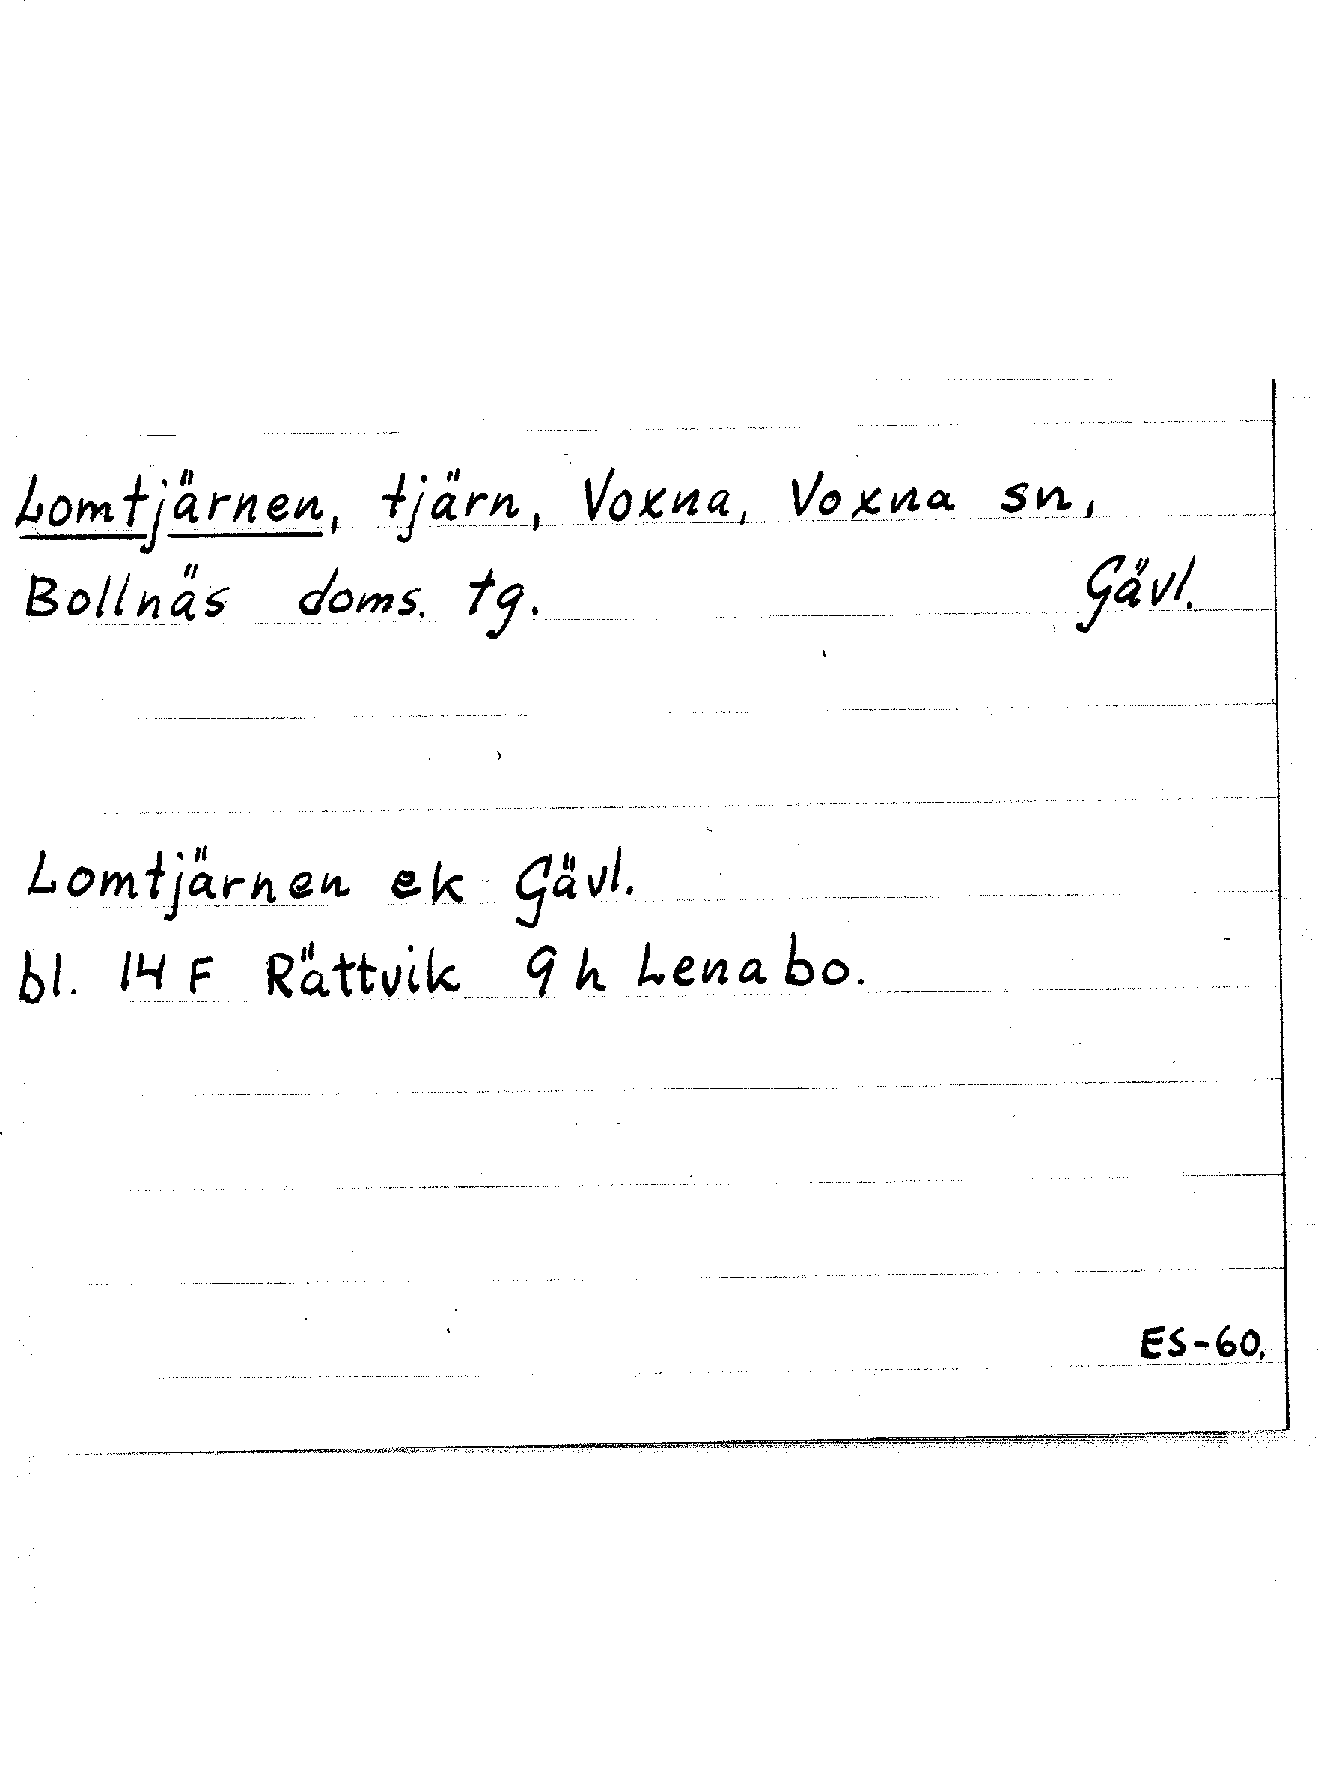 Lomtjärnen, tjärn, Voxna, Voxna sn,
Bollnäs doms. tg. Gävl.
Lomtjärnen ek Gävl.
bl. 14 F Rättvik 9 h Lenabo.
ES-60.